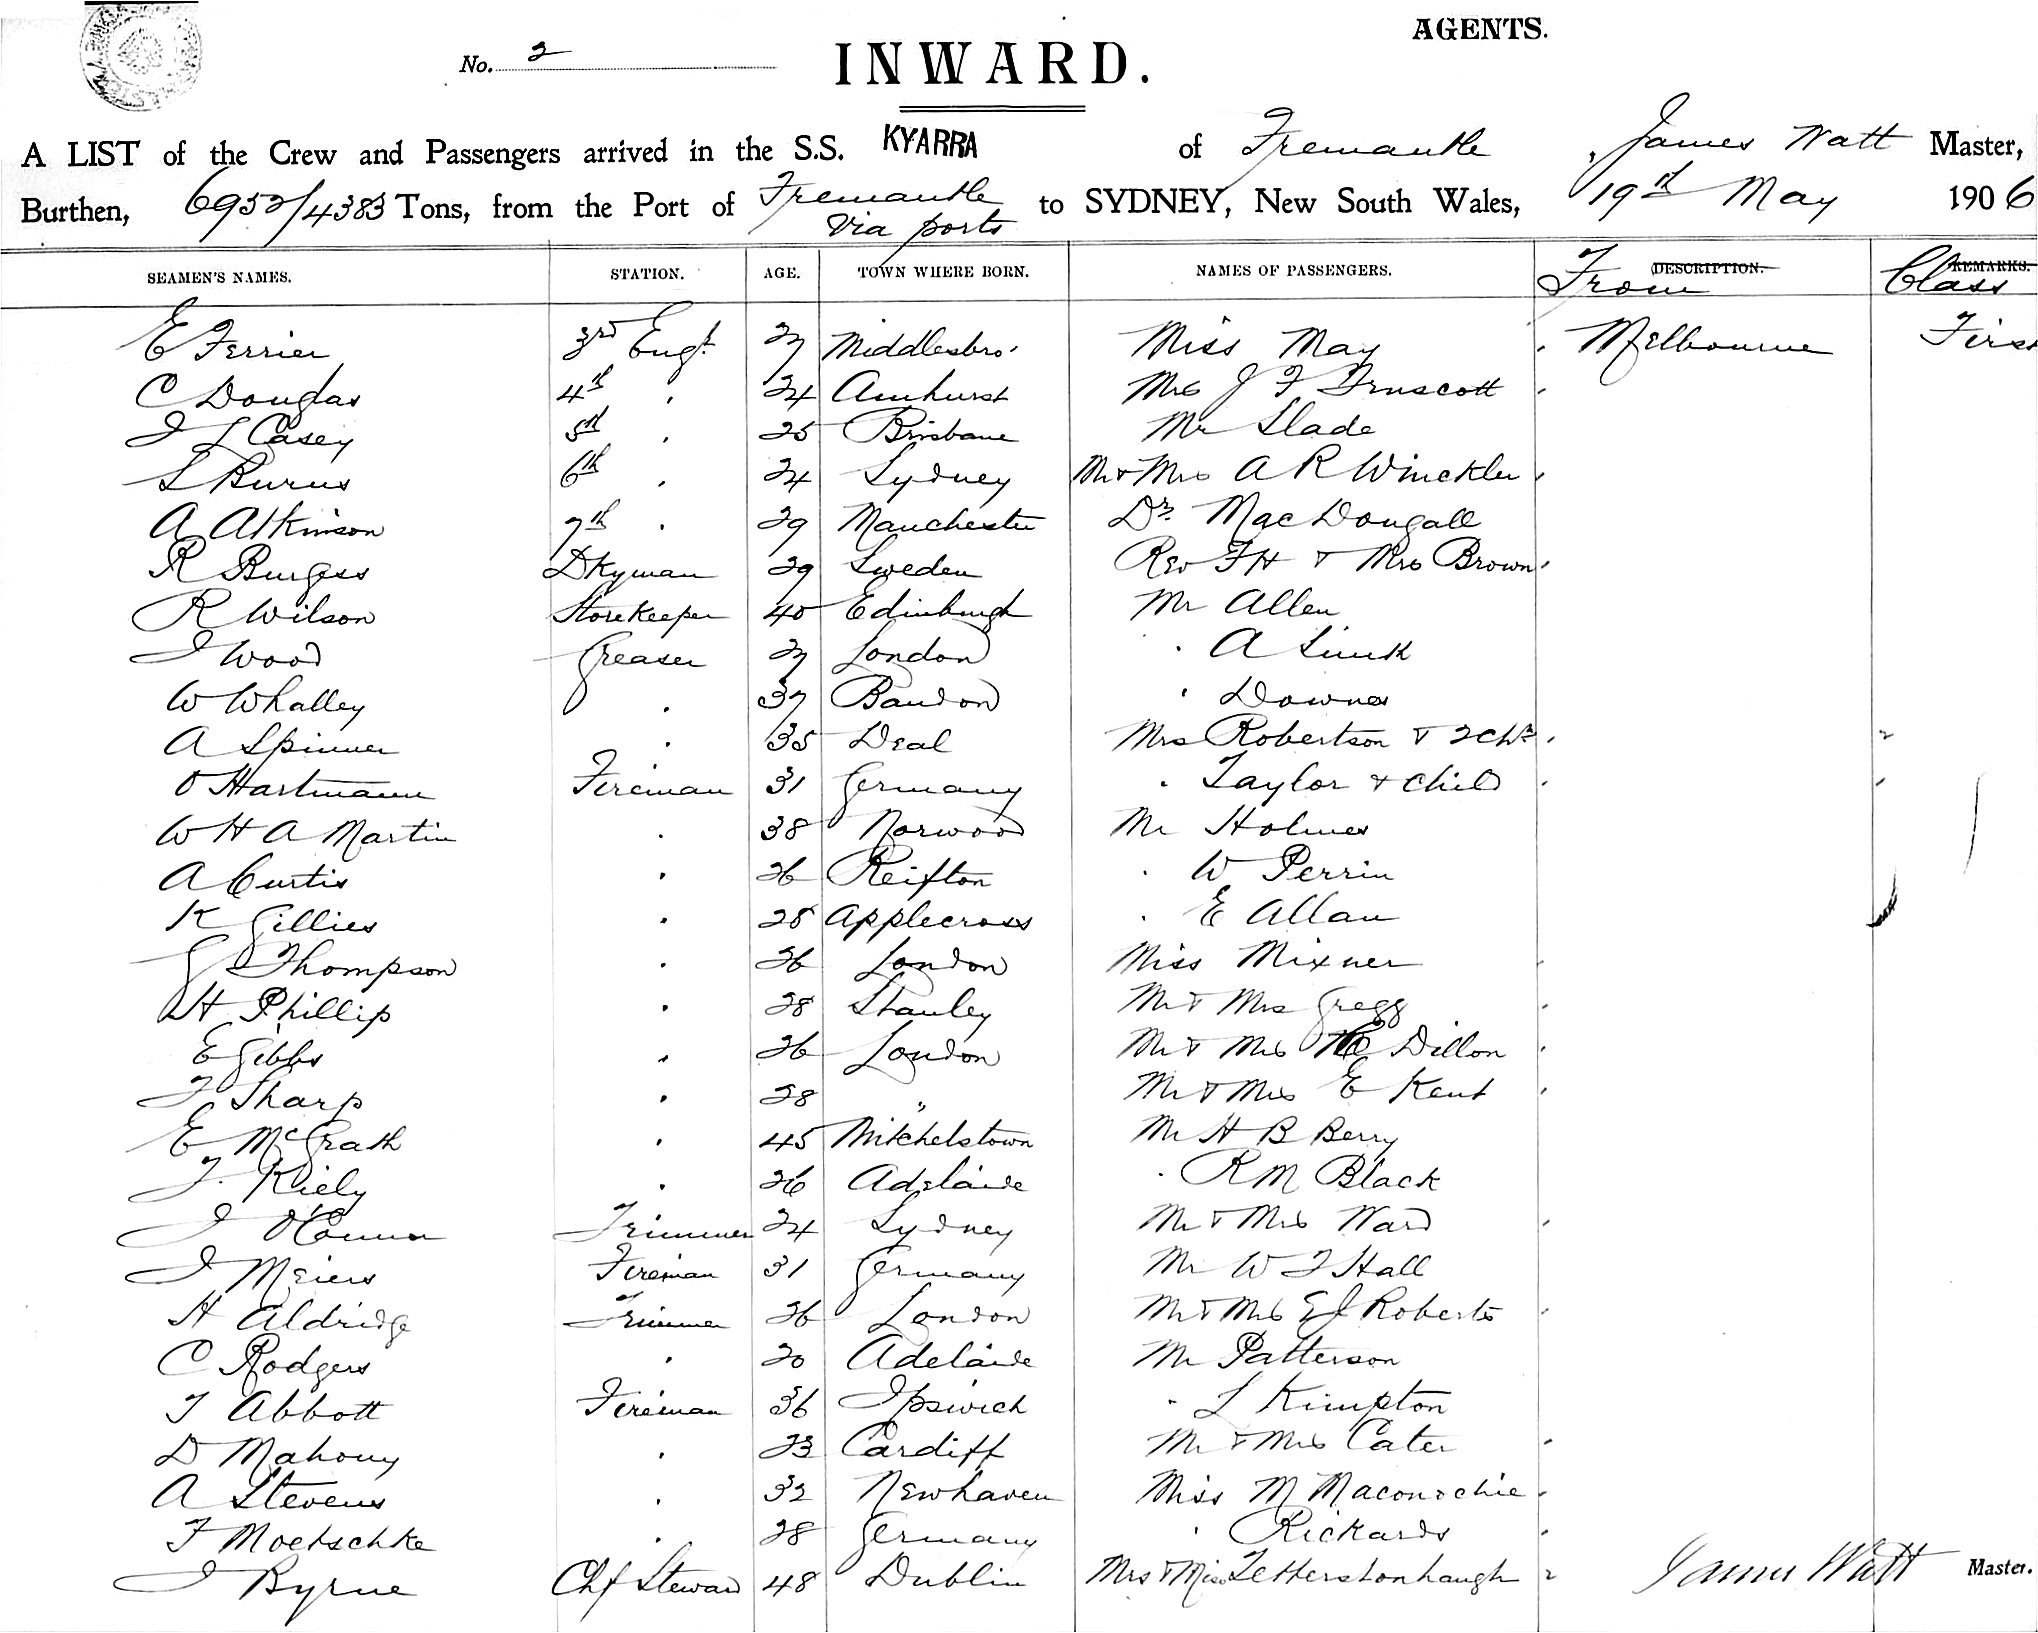 AGENTS.
No. 2
INWARD.
A LIST of the Crew and Passengers arrived in the S.S. KYARRA of Fremantle, James Watt Master,
Burthen, 6952/4383 Tons, from the Port of Fremantle Via ports to SYDNEY, New South Wales, 19th May 1906
SEAMEN'S NAMES. STATION. AGE. TOWN WHERE BORN. NAMES OF PASSENGERS. DESCRIPTION. From REMARKS. Class
E Ferrier 3rd Engr. 27 Middlesbro' Miss May Melbourne First
C Douglas 4th 24 Amhurst Mrs J F Truscott
J L Casey 5th 25 Brisbane Mr Slade
S Burns 6th 24 Sydney Mr & Mrs A R Winckler
A Atkinson 7th 29 Manchester Dr. MacDougall
R Burgess Dkyman 29 Sweden Rev F H & Mrs Brown
R Wilson Storekeeper 40 Edinburgh Mr Allen
J Wood Greaser 27 London A Smith
W Whalley 37 Bandon Downes
A Spinner 35 Deal Mrs Robertson & 2 chn
O Hartmann Fireman 31 Germany Taylor & child
W H A Martin 38 Norwood Mr Holmes
A Curtis 26 Reifton W Perrin
K Gillies 28 Applecross E Allan
G Thompson 26 London Miss Mixner
H Phillip 28 Stanley Mr & Mrs Gregg
E Gibbs 26 London Mr & Mrs Dillon
F Sharp 28 " Mr & Mrs E Kent
E McGrath 45 Mitchelstown Mr H B Berry
J. Kiely 26 Adelaide R M Black
J O'Connor Trimmer 24 Sydney Mr & Mrs Ward
J Meiers Fireman 31 Germany Mr W F Hall
H Aldridge Trimmer 26 London Mr & Mrs E J Roberts
C Rodgers 20 Adelaide Mr Patterson
T Abbott Fireman 36 Ipswich L Kimpton
D Mahony 23 Cardiff Mr & Mrs Cater
A Stevens 32 Newhaven Miss M Maconochie
F Moetschke 28 Germany Rickards
J Byrne Chf Steward 48 Dublin Mrs & Miss Fetherstonhaugh James Watt Master.